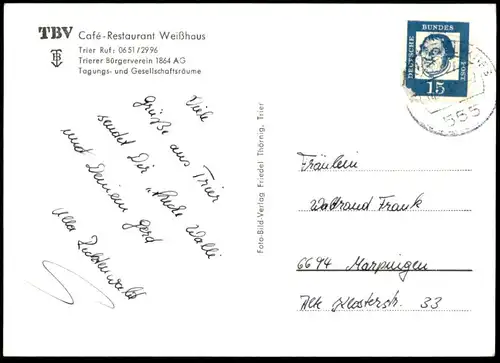 TBV Café-Restaurant Weißhaus
Trier Ruf: 0651/2996
Trierer Bürgerverein 1864 AG
Tagungs- und Gesellschaftsräume
Viele
Grüße aus Trier
sendet Dir
und Deinem Gerd
Foto-Bild-Verlag Friedel Thörnig, Trier
DEUTSCHE
BUNDES
POST
15
555
Fräulein
Waltraud Frank
6694 Marpingen
Alte Klosterstr. 33